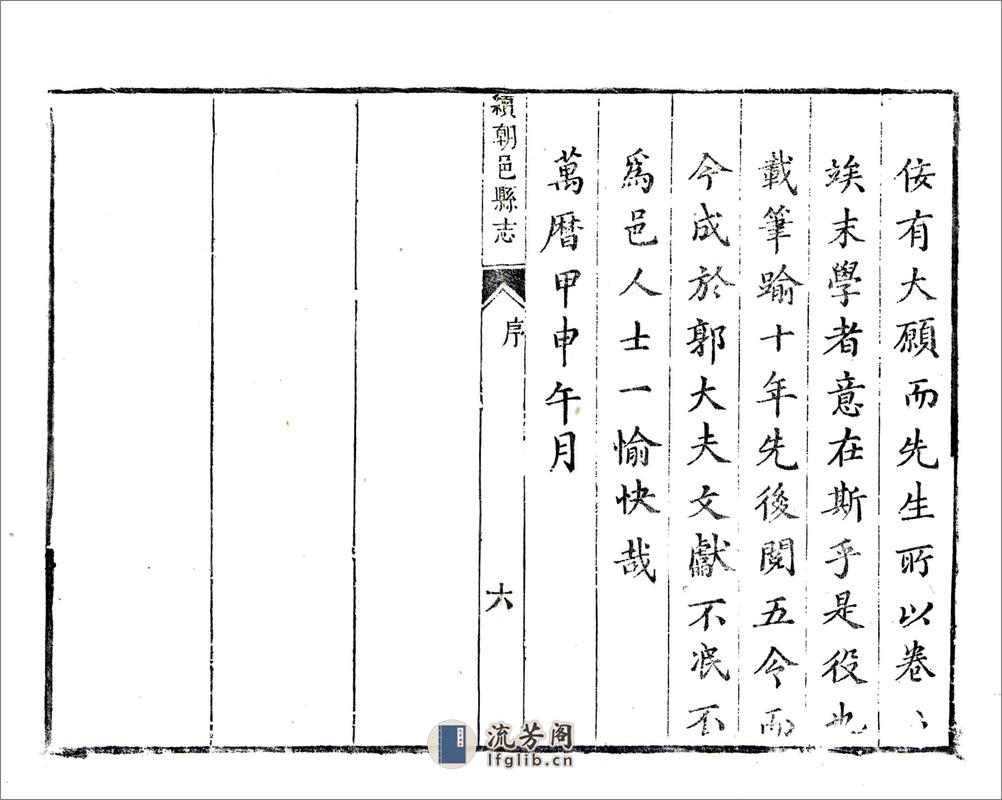 侫有大願而先生所以卷〻
竢末學者意在斯乎是役也
載筆踰十年先後閱五令而
今成於郭大夫文獻不泯不
爲邑人士一愉快哉
萬曆甲申午月
續朝邑縣志
序
六
流芳阁
lfglib.cn